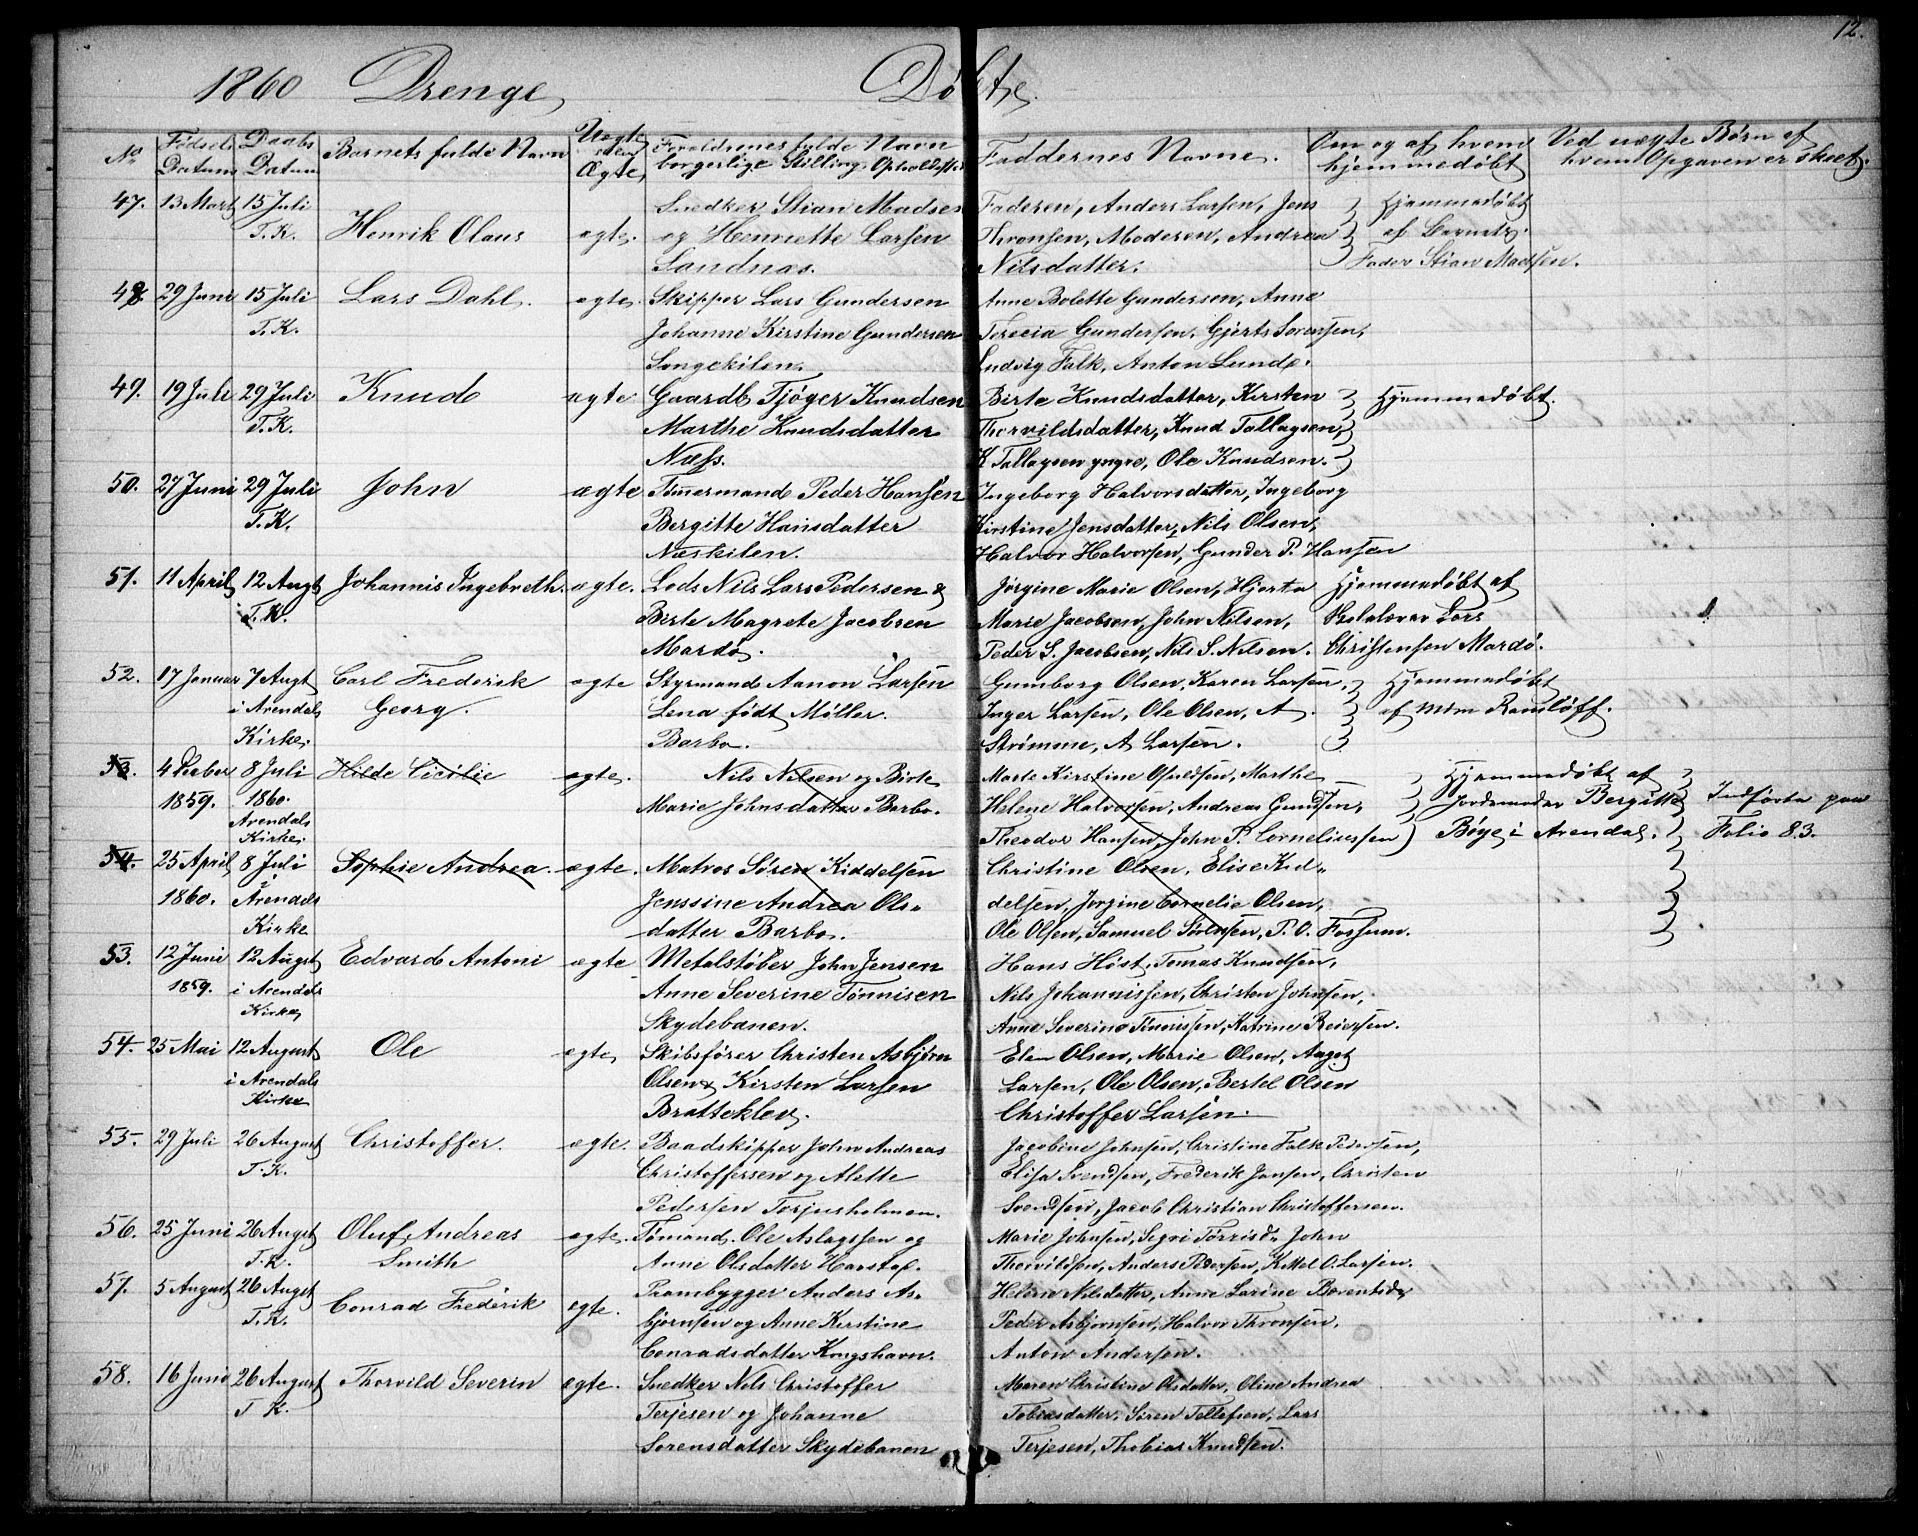 12.
1860 Drenge Døbte.
No Fødsels Datum Daabs Datum Barnets fulde Navn Uægte eller Ægte Forældrenes fulde Navn borgerlige Stilling Opholdsted Faddernes Navne. Om og af hvem hjemmedøbt Ved uægte Børn af hvem Opgaven er skeet.
47. 13 Mart 15 Juli Snedker Stian Madsen Faderen, Anders Larsen, Jens Hjemmedøbt
T. K. Henrik Olaus ægte. og Henriette Larsen Thronsen, Moderen, Andrea af Barnets
Sandnæs. Nilsdatter. Fader Stian Madsen.
48 29 Juni 15 Juli Lars Dahl. ægte. Skipper Lars Gundersen Anne Bolette Gundersen, Anne
T. K. Johanne Kirstine Gundersen Terecia Gundersen, Gjerts Sørensen,
Songekilen. Ludvig Falk, Anton Lunde.
49. 19 Juli 29 Juli Knud ægte Gaardb. Tjøger Knudsen Birte Knudsdatter, Kirsten Hjemmedøbt.
T. K. Marthe Knudsdatter Thorvildsdatter, Knud Tallagsen,
Næss. K Tallagsen yngre, Ole Knudsen.
50. 27 Juni 29 Juli John ægte Tømermand Peder Hansen Ingeborg Halvorsdatter, Ingeborg
T. K. Bergitte Hansdatter Kirstine Jensdatter, Nils Olsen,
Næskilen. Halvor Halvorsen, Gunder P. Hansen
51. 11 April 12 Augt Johannis Ingebreth. ægte. Lods Nils Lars Pedersen & Jørgine Marie Olsen, Hjerta Hjemmedøbt af
i T. K. Birte Magrete Jacobsen Marie Jacobsen, John Nilsen, Skolalærer Lars
Mardø. Peder S. Jacobsen, Nils S. Nilsen. Christensen Mardø.
52. 17 Januar 7 Augt Carl Frederik ægte Styrmand Aanon Larsen Gumborg Olsen, Karen Larsen, Hjemmedøbt
i Arendals Georg. Lena født Møller. Inger Larsen, Ole Olsen, A. af Mdm Ramløff.
Kirke. Barbo. Strømme, A Larsen.
53. 4 Deeber 8 Juli Hilde Cicilie ægte. Nils Nilsen og Birte Marte Kirstine Osuldsen, Marthe Hjemmedøbt af
1859. 1860. Marie Johnsdatter Barbo. Helene Halvorsen, Andreas Gundsen, Jordemoder Bergitte Indførte paa
Arendals Kirke. Theodor Hansen, John P. Corneliussen Bøge i Arendal. Folio 83.
54. 25 April 8 Juli Sophie Andrea. ægte. Matros Søren Kiddelsen Christine Olsen, Elise Kid-
1860. i Arendals Jenssine Andrea Ols- delsen, Jørgine Cornelie Olsen,
Kirke datter Barbo. Ole Olsen, Samuel Sørensen, P. O. Fossum.
53. 12 Juni 12 Augst Edvard Antoni ægte Metalstøber John Jensen Hans Høst, Tomas Knudsen,
1859. i Arendals Anne Severine Tønnisen Nils Johannissen, Christen Johnsen,
Kirke Skydebanen. Anne Severine Tønnissen, Katrine Reiersen.
54. 25 Mai 12 August Ole ægte Skibsfører Christen Asbjørn Elen Olsen, Marie Olsen, Augst
i Arendals Olsen & Kirsten Larsen Larsen, Ole Olsen, Bertel Olsen
Kirke Bratteklev. Christoffer Larsen.
55. 29 Juli 26 August Christoffer. ægte. Baadskipper John Andreas Jacobine Johnsen, Christine Falk Pedersen,
T. K. Christoffersen og Alette Elisa Svendsen, Frederik Jansen, Christen
Pedersen Torjusholmen. Svendsen, Jacob Christian Christoffersen.
56. 25 Juni 26 Augst Oluf Andreas ægte. Tømand. Ole Aslagssen og Marie Johnsen, Segri Torrisd., John
T. K. Smith Anne Olsdatter Harstad. Thorvildsen, Anders Pedersen, Kittel O. Larsen.
57. 5 August 26 Augst Prambygger Anders As- Helene Nilsdatter, Anne Larine Berentsda
T. K. Conrad Frederik ægte. bjørnsen og Anne Kirstine Peder Asbjørnsen, Halvor Thronsen,
Conradsdatter Kongshavn. Anton Andersen.
58. 16 Juni 26 August Thorvild Severin ægte. Snedker Nils Christoffer Maren Christine Olsdatter, Oline Andrea
T K. Terjesen og Johanne Tobiasdatter, Siren Tellefsen, Lars
Sørensdatter Skydebanen Terjesen, Thobias Knudsen.